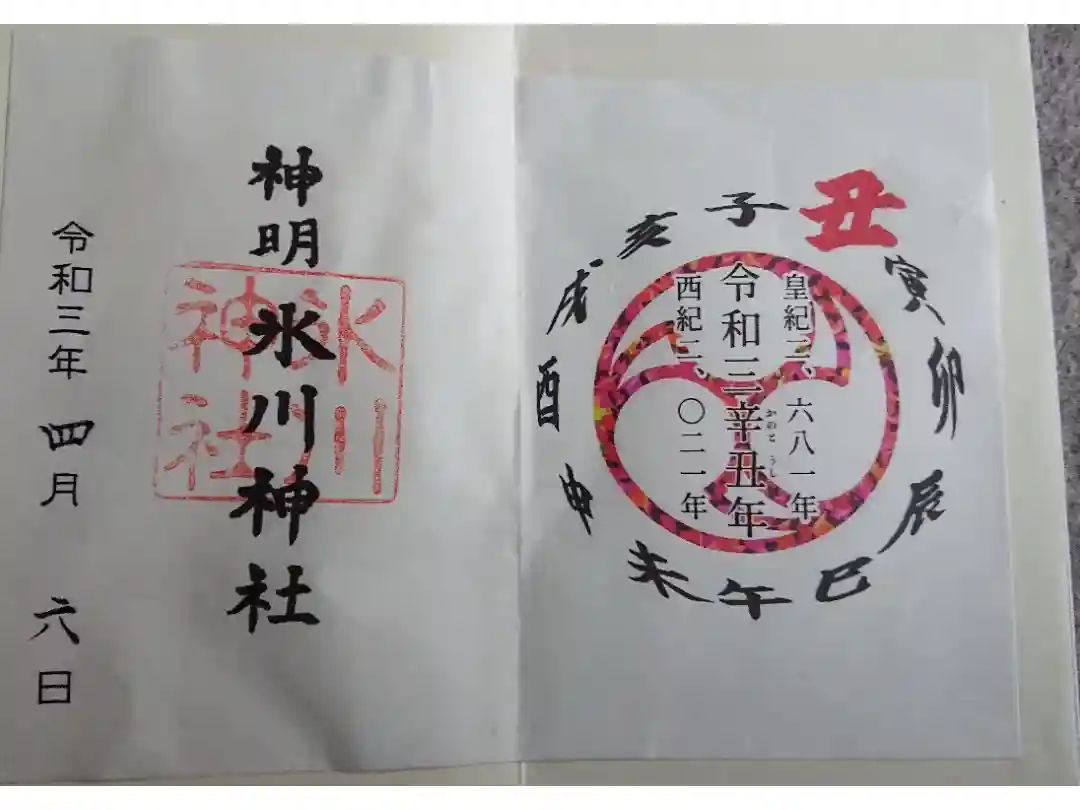 神明氷川神社
氷川
神社
令和三年 四月 六日
子
丑
寅
卯
辰
巳
午
未
申
酉
戌
亥
皇紀二、六八一年
令和三辛丑年
かのと うし
西紀二、〇二一年